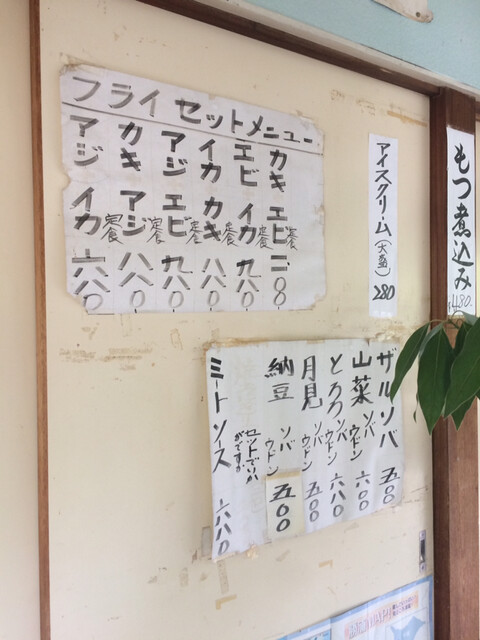 フライセットメニュー
カキ エビ定食
エビ イカ定食 九八〇
イカ カキ定食 八八〇
アジ エビ定食 九八〇
カキ アジ定食 八八〇
アジ イカ定食 六八〇
もつ煮込み 480
アイスクリーム(大盛) 280
ザルソバ 五〇〇
山菜 ソバ ウドン 六〇〇
とろろ ソバ ウドン 六八〇
月見 ソバ ウドン 五〇〇
納豆 ソバ ウドン 五〇〇
セットでいかがですか
ミートソース 六八〇